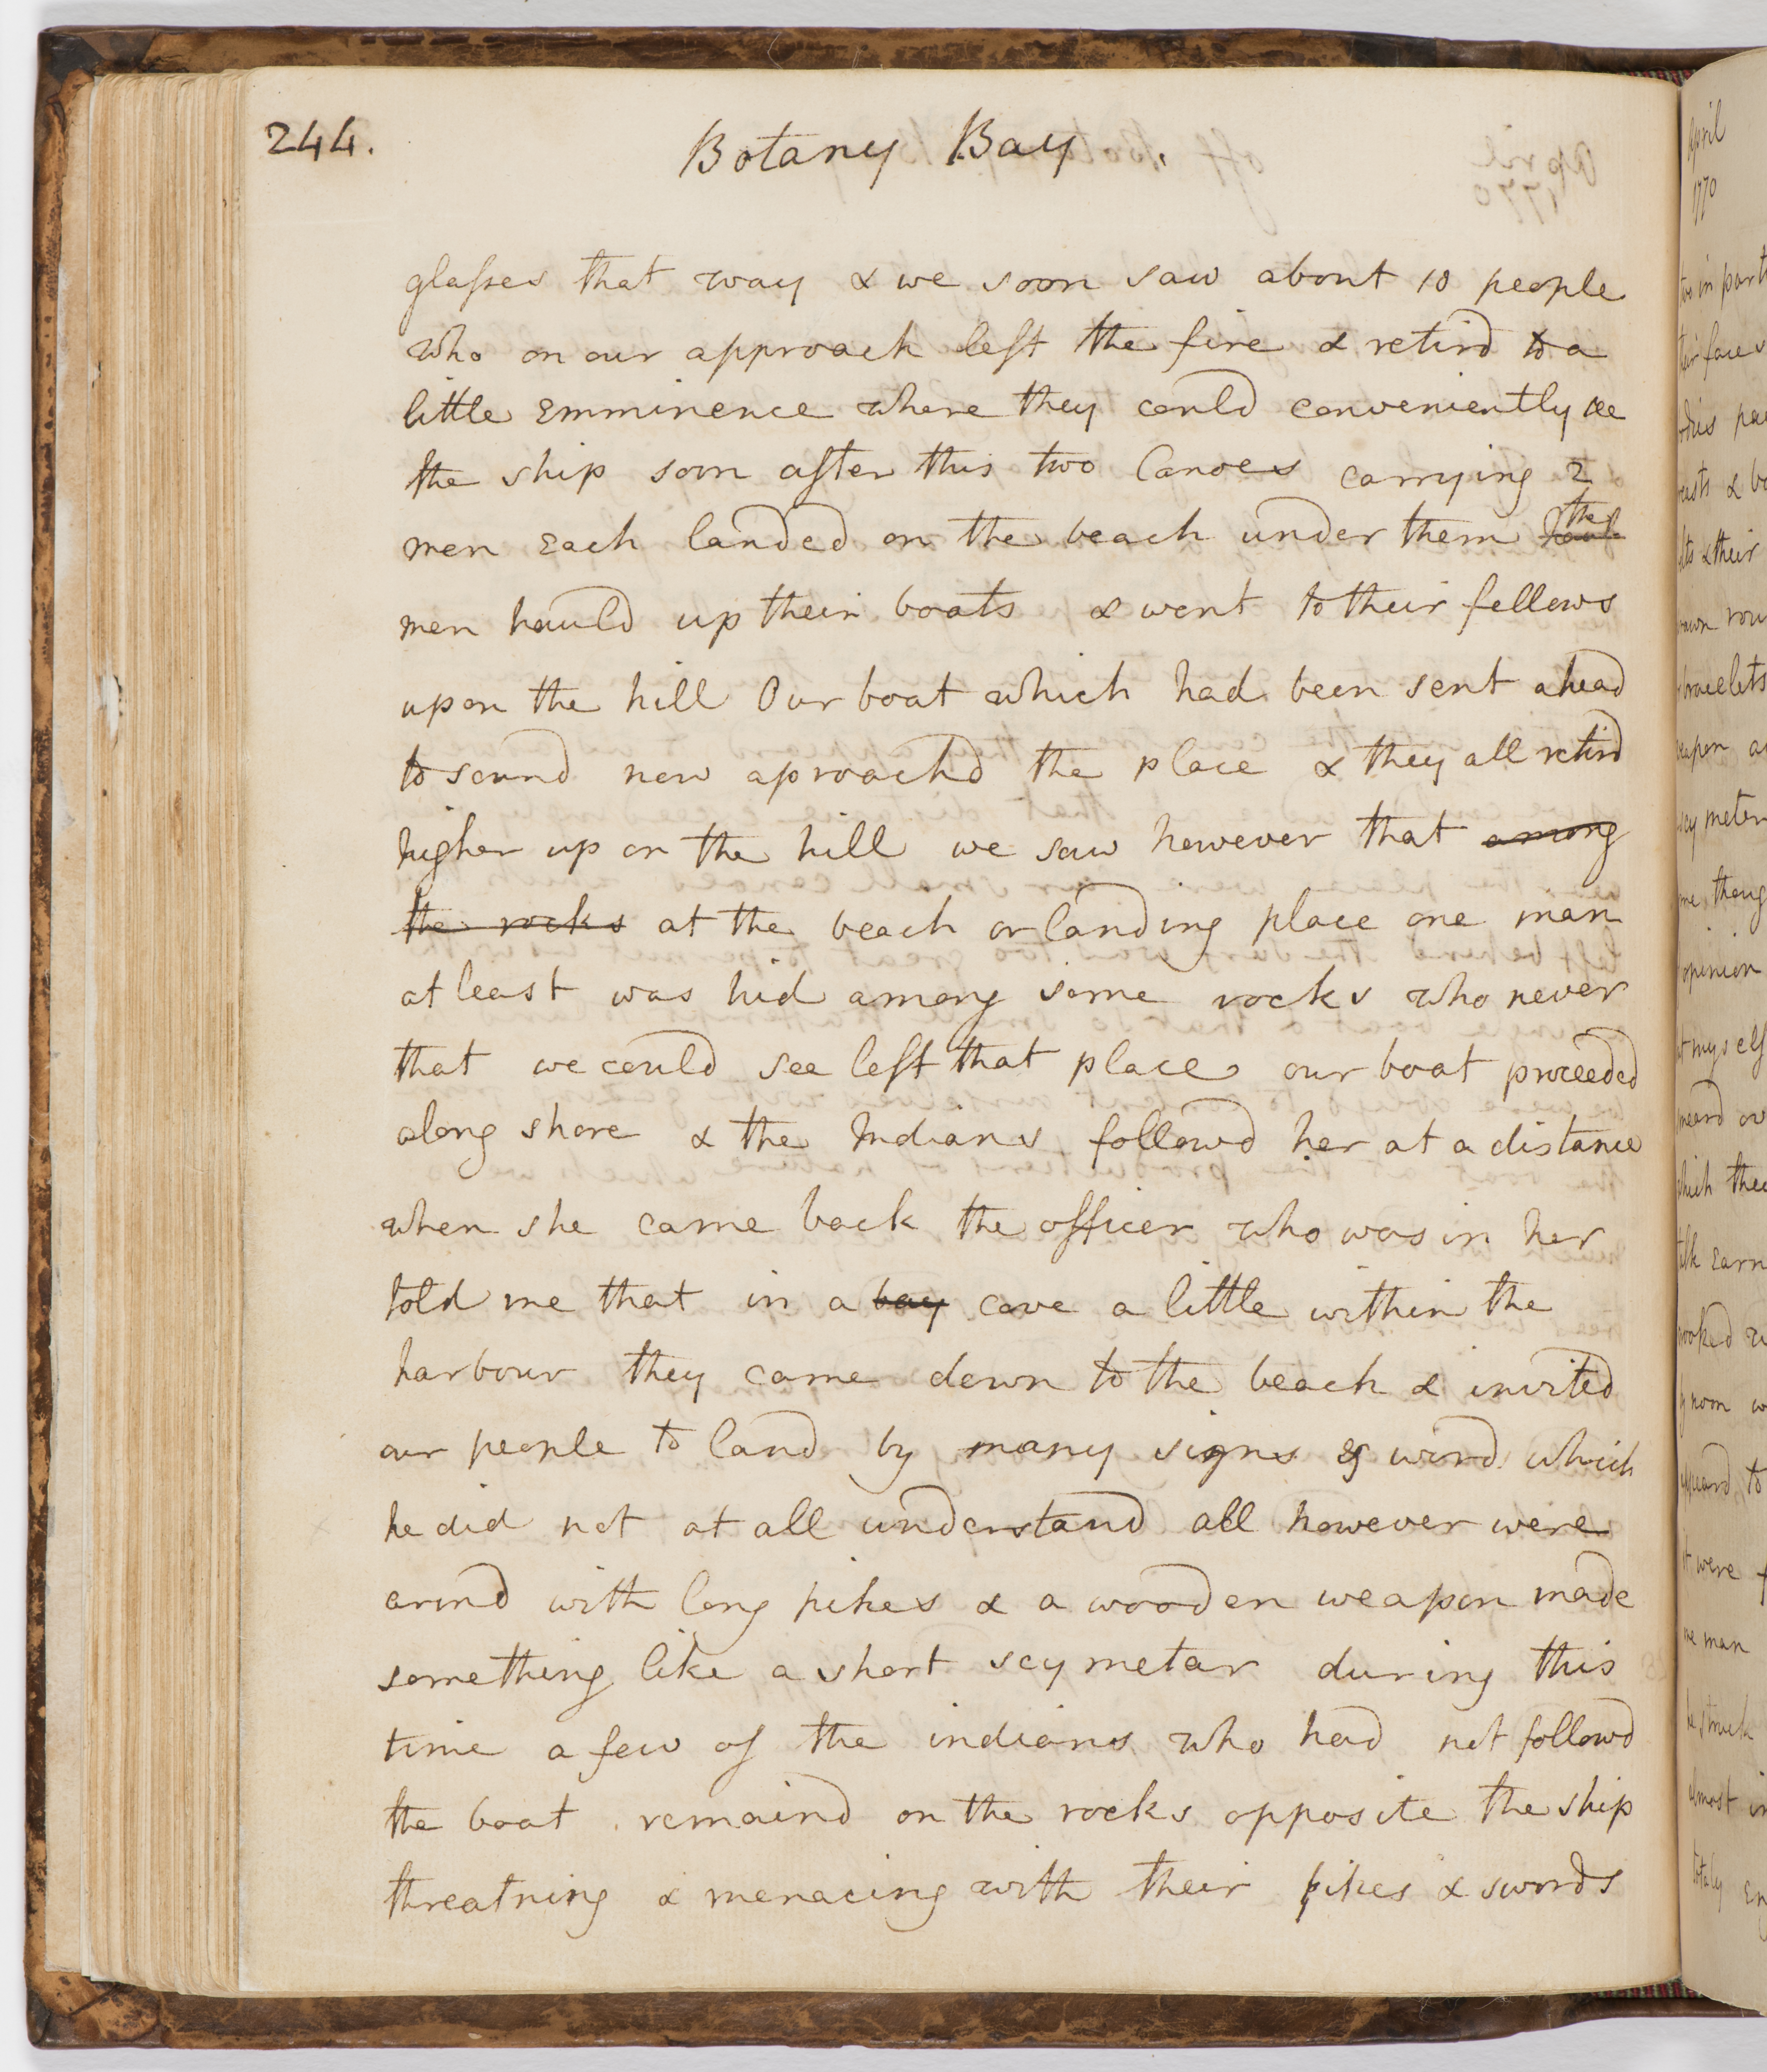 244.
Botany Bay.
glaſses that way & we soon saw about 10 people
who on our approach left the fire & retird to a
little Emminence where they could conveniently see
the ship soon after this two Canoes carrying 2
men Each landed on the beach under them the
men hauld up their boats & went to their fellows
upon the hill Our boat which had been sent ahead
to sound now aproachd the place & they all retird
higher up on the hill we saw however that among
the rocks at the beach or landing place one man
at least was hid among some rocks who never
that we could see left that place our boat proceeded
along shore & the Indians followd her at a distance
when she came back the officer who was in her
told me that in a bay cove a little within the
harbour they came down to the beach & invited
our people to land by many signs & word which
he did not at all understand all however were
armd with long pikes & a wooden weapon made
something like a short scymetar during this
time a few of the indians who had not followd
the boat remaind on the rocks opposite the ship
threatning & menacing with their pikes & swords
April
1770